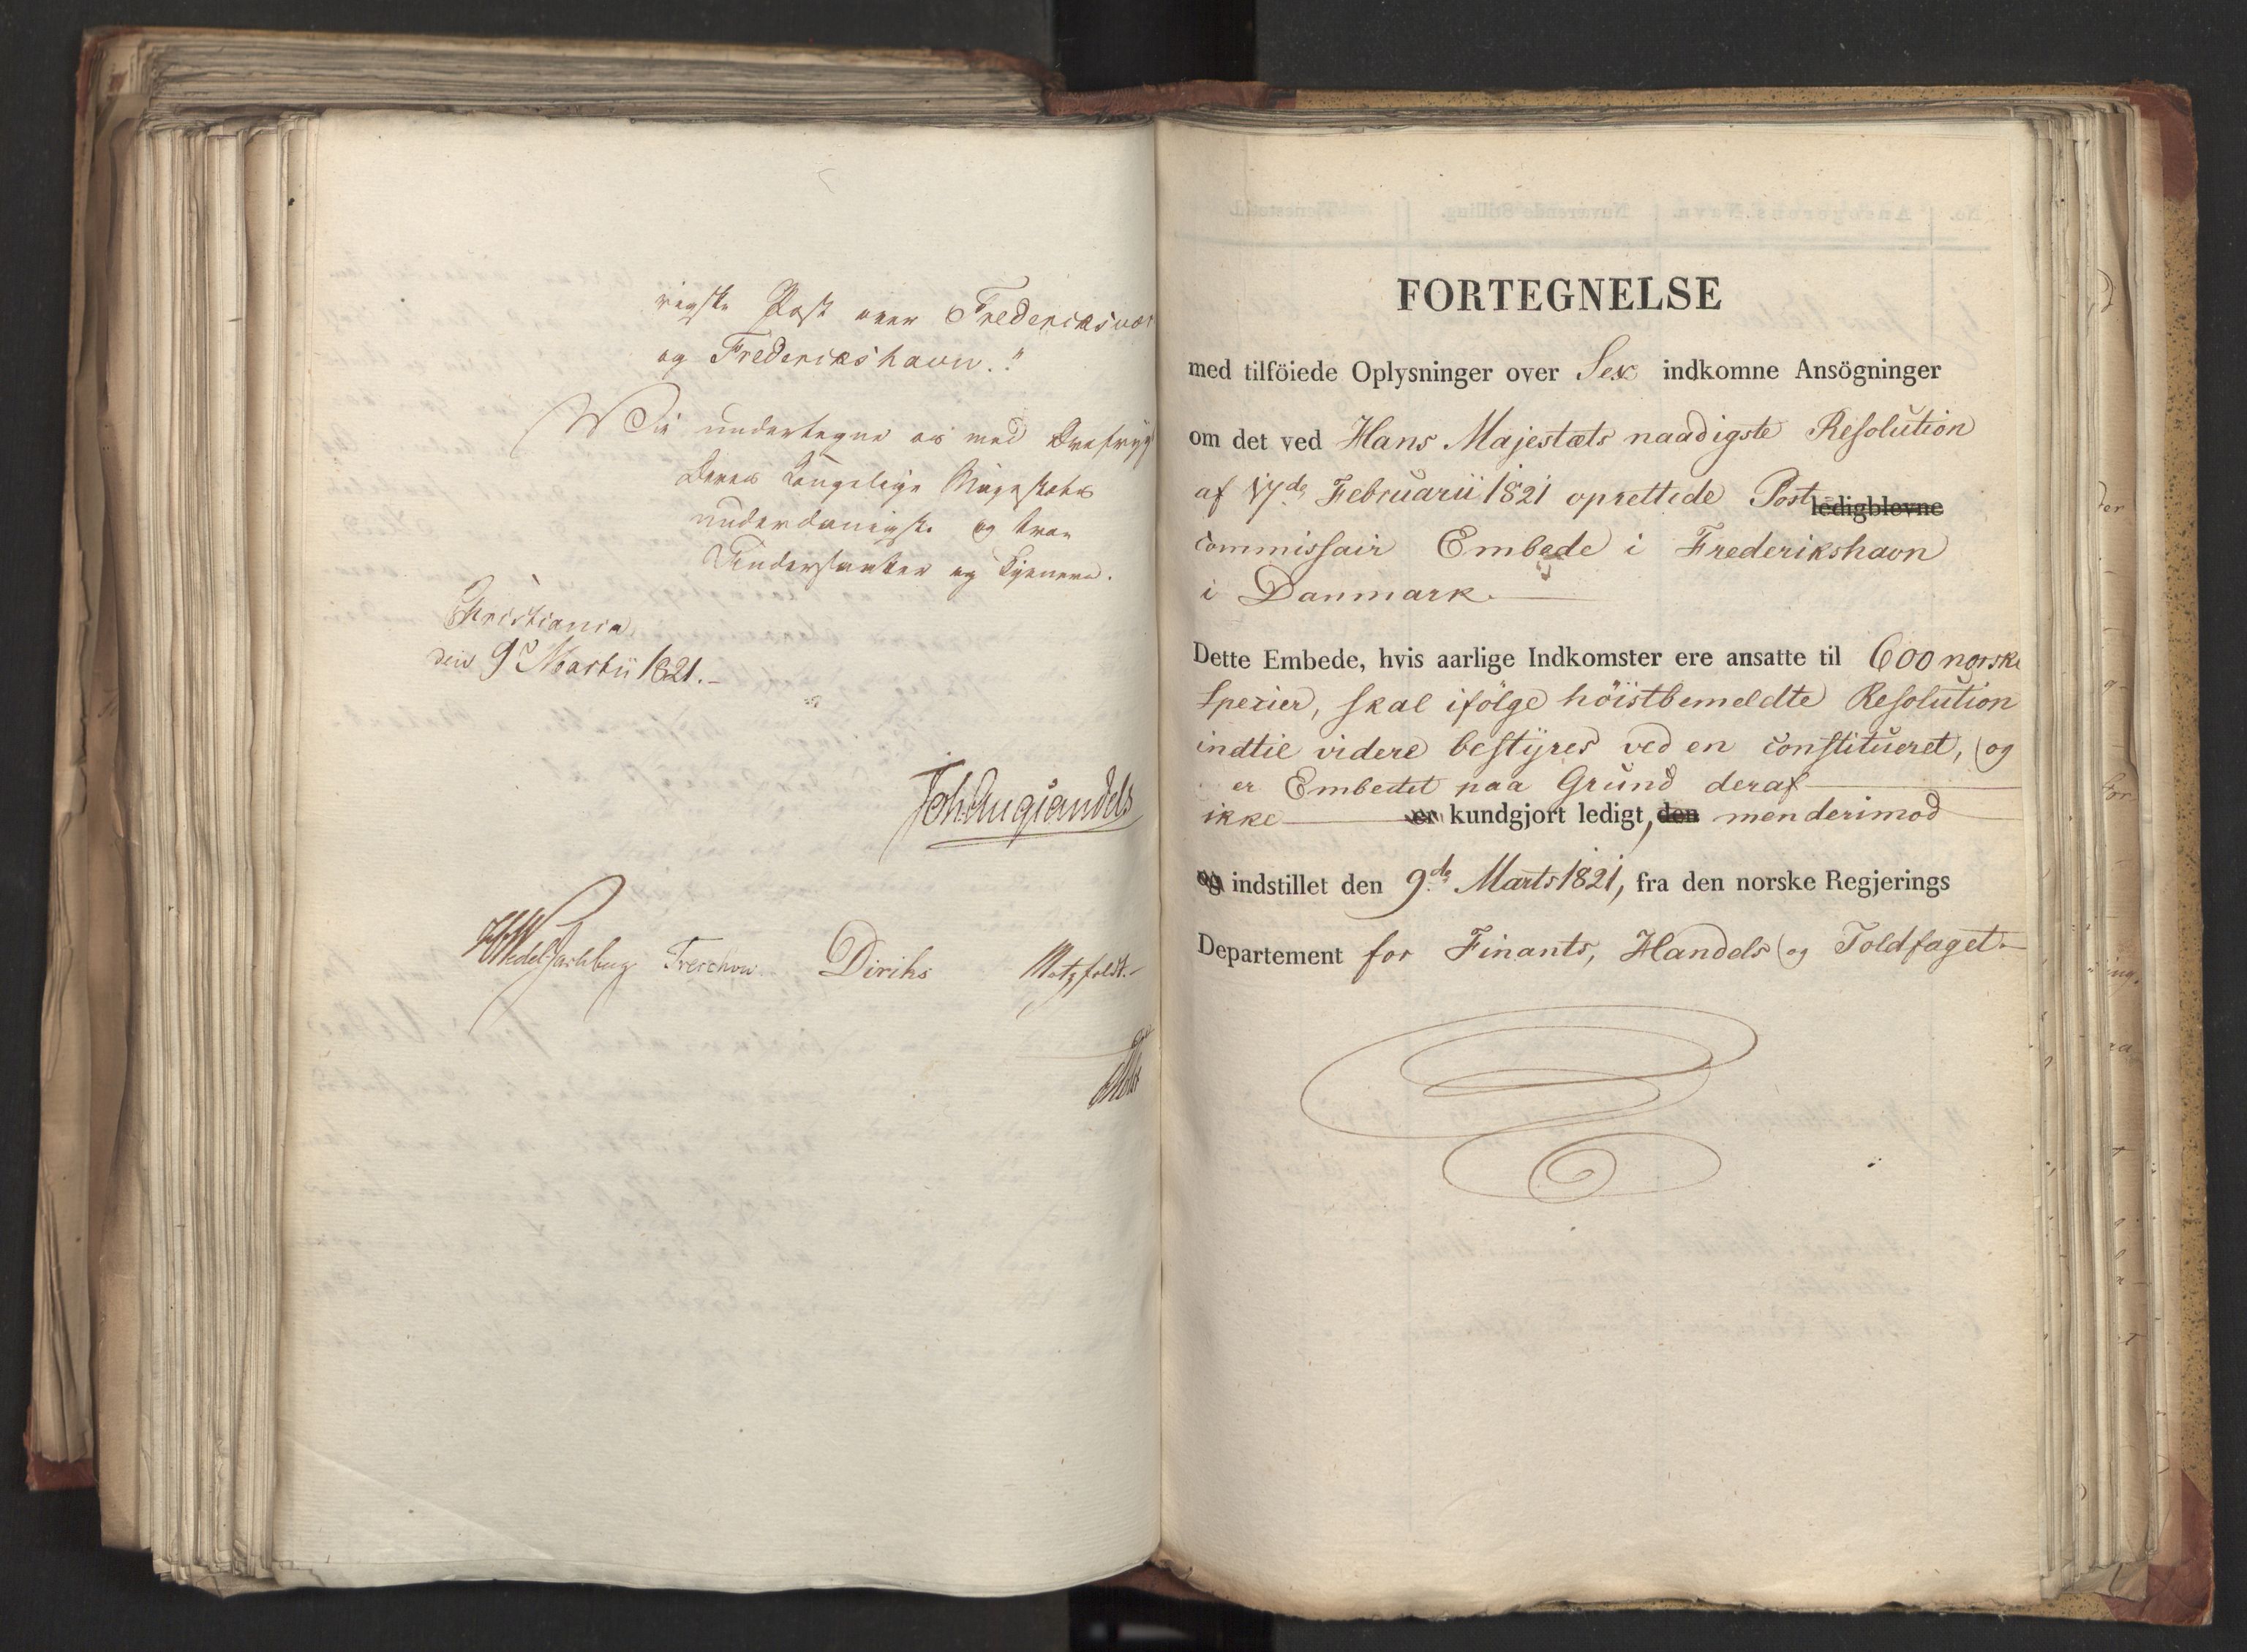 rigste Post over Frederiksvær
og Frederikshavn."
Vi undertegne os med Ærefrygt
Deres Kongelige Majestæts
underdanigste og troe
Undersaatter og Tjenere.
Christiania
den 9de Martii 1821.-
Joh. Aug. Sandels
HWedel Jarlsberg Treschow Diriks Motzfeldt.
FORTEGNELSE
med tilföiede Oplysninger over Sex indkomne Ansögninger
om det ved Hans Majestæts naadigste Resolution
af 17de Februarii 1821 oprettede Post ledigblevne
commissair Embede i Frederikshavn
i Danmark.
Dette Embede, hvis aarlige Indkomster ere ansatte til 600 norske
Spezier, skal ifölge höistbemeldte Resolution
indtil videre bestyres ved en constitueret, og
er Embedet paa Grund deraf
ikke er kundgjort ledigt, den men derimod
og indstillet den 9de Marts 1821, fra den norske Regjerings
Departement for Finants, Handels og Toldfaget.